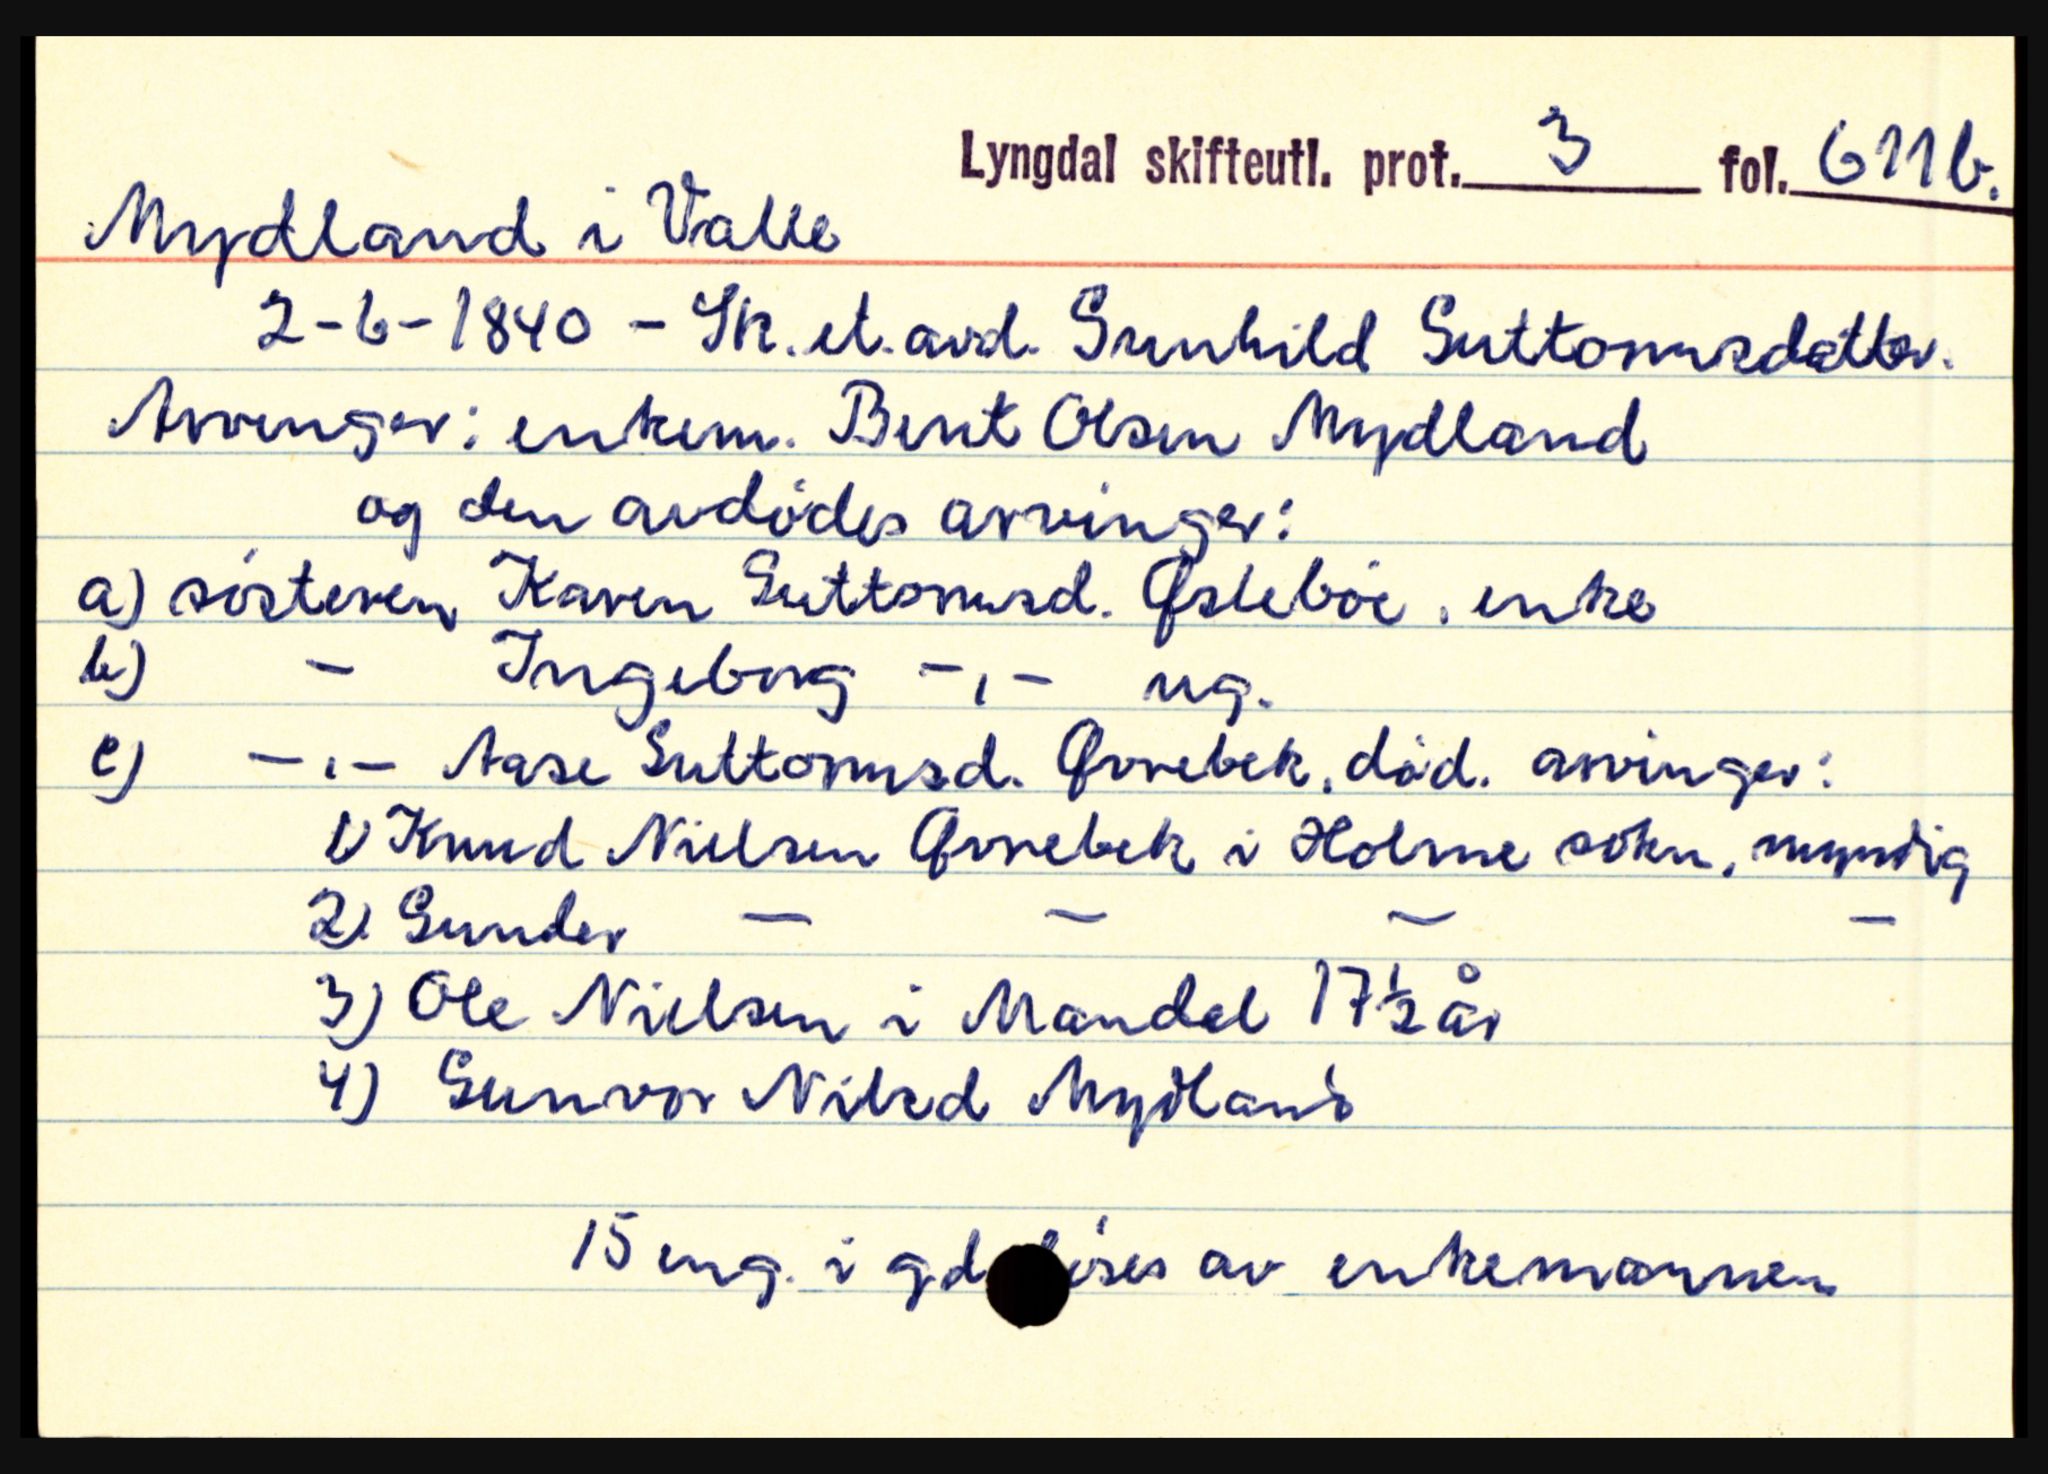 Lyngdal skifteutl. prot. 3 fol. 611b.
Mydland i Valle
2-6-1840 - Sk. et. avd. Gunhild Guttormsdatter.
Arvinger: enkem. Bent Olsen Mydland
og den avdødes arvinger:
a) søsteren Karen Guttormsd. Øslebøe, enke
b) - Ingeborg -,- ug.
c) -,- Aase Guttormsd. Øvrebek, død. arvinger:
1) Knud Nielsen Øvrebek i Holme sokn, myndig
2) Gunder - - - -
3) Ole Nielsen i Mandal 17½ år
4) Gunvor Nilsd Mydland
15 eng. i gd løses av enkemannen